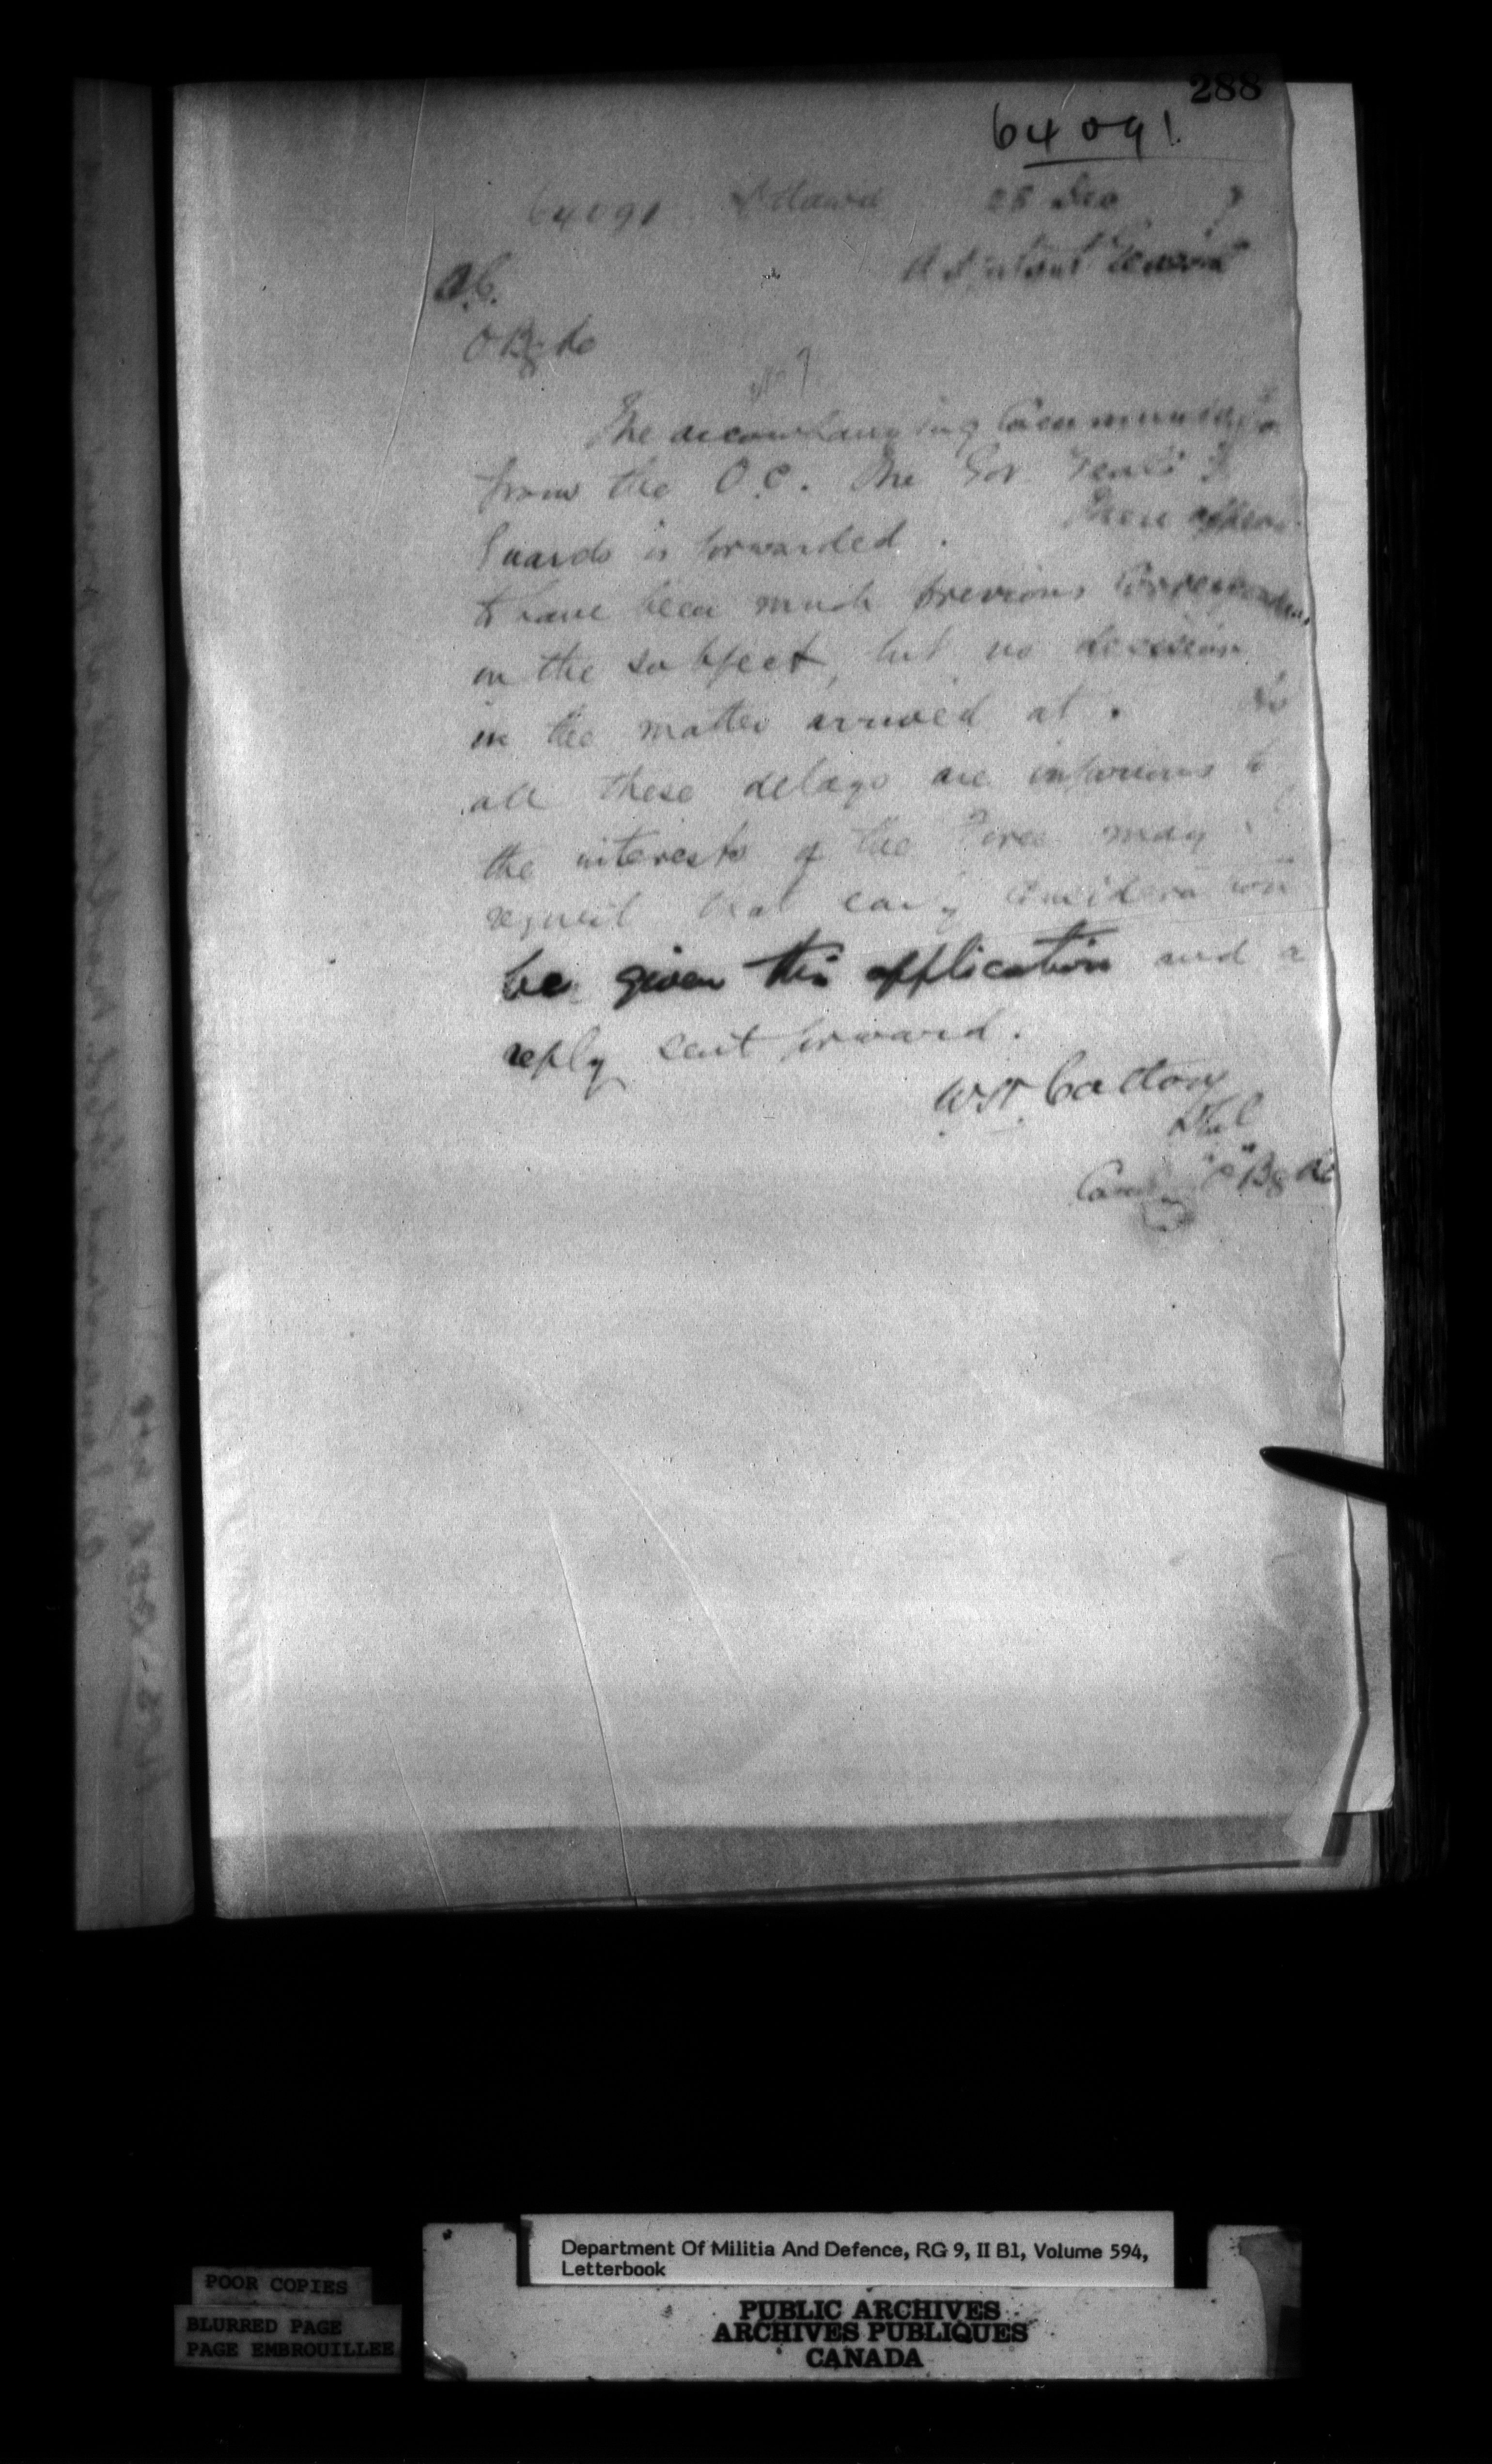 288
64091
64091 Ottawa 28 Dec
Adjutant General
O Bgde
The accompanying Communication
from the O.C. The Gov. Genl's F.
Guards is forwarded. There appears
to have been much previous Correspondence
on the subject, but no decision
in the matter arrived at. As
all these delays are injurious to
the interests of the Force may I
request that early consideration
be given this application and a
reply sent forward.
W.H. Cotton
Comdg "C" Bgde
POOR COPIES
BLURRED PAGE
PAGE EMBROUILLEE
Department Of Militia And Defence, RG 9, II B1, Volume 594,
Letterbook
PUBLIC ARCHIVES
ARCHIVES PUBLIQUES
CANADA